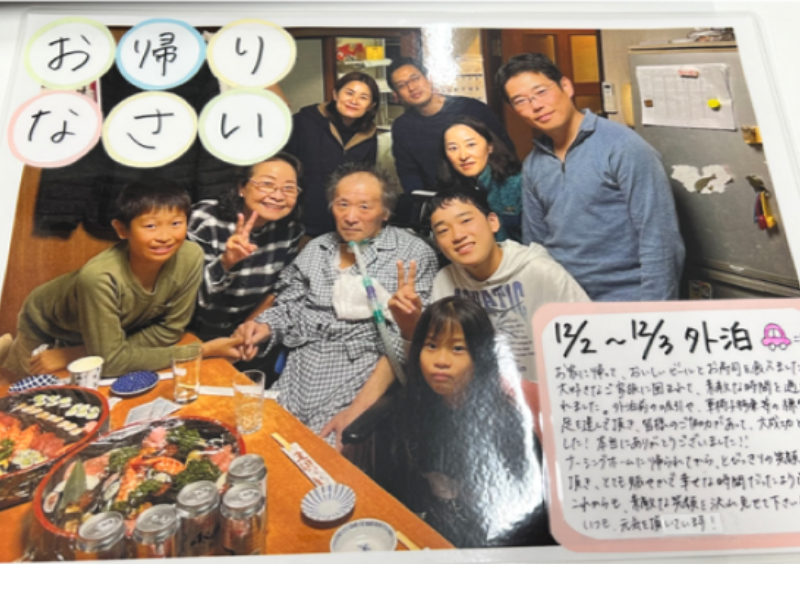 お帰り
なさい
12/2 〜 12/3 外泊
お家に帰って、おいしいビールとお寿司を
大好きなご家族に囲まれて、素敵な時間を過
れました。外泊前の
足を運んで頂き、皆様のご協力があって、大成功
した！本当にありがとうございました！！
ナーシングホームに帰られてから、とびっきりの笑顔
頂き、とても賑やかで幸せな時間だったよう
これからも、素敵な笑顔を沢山見せて下さい
いつも、元気を頂いています！